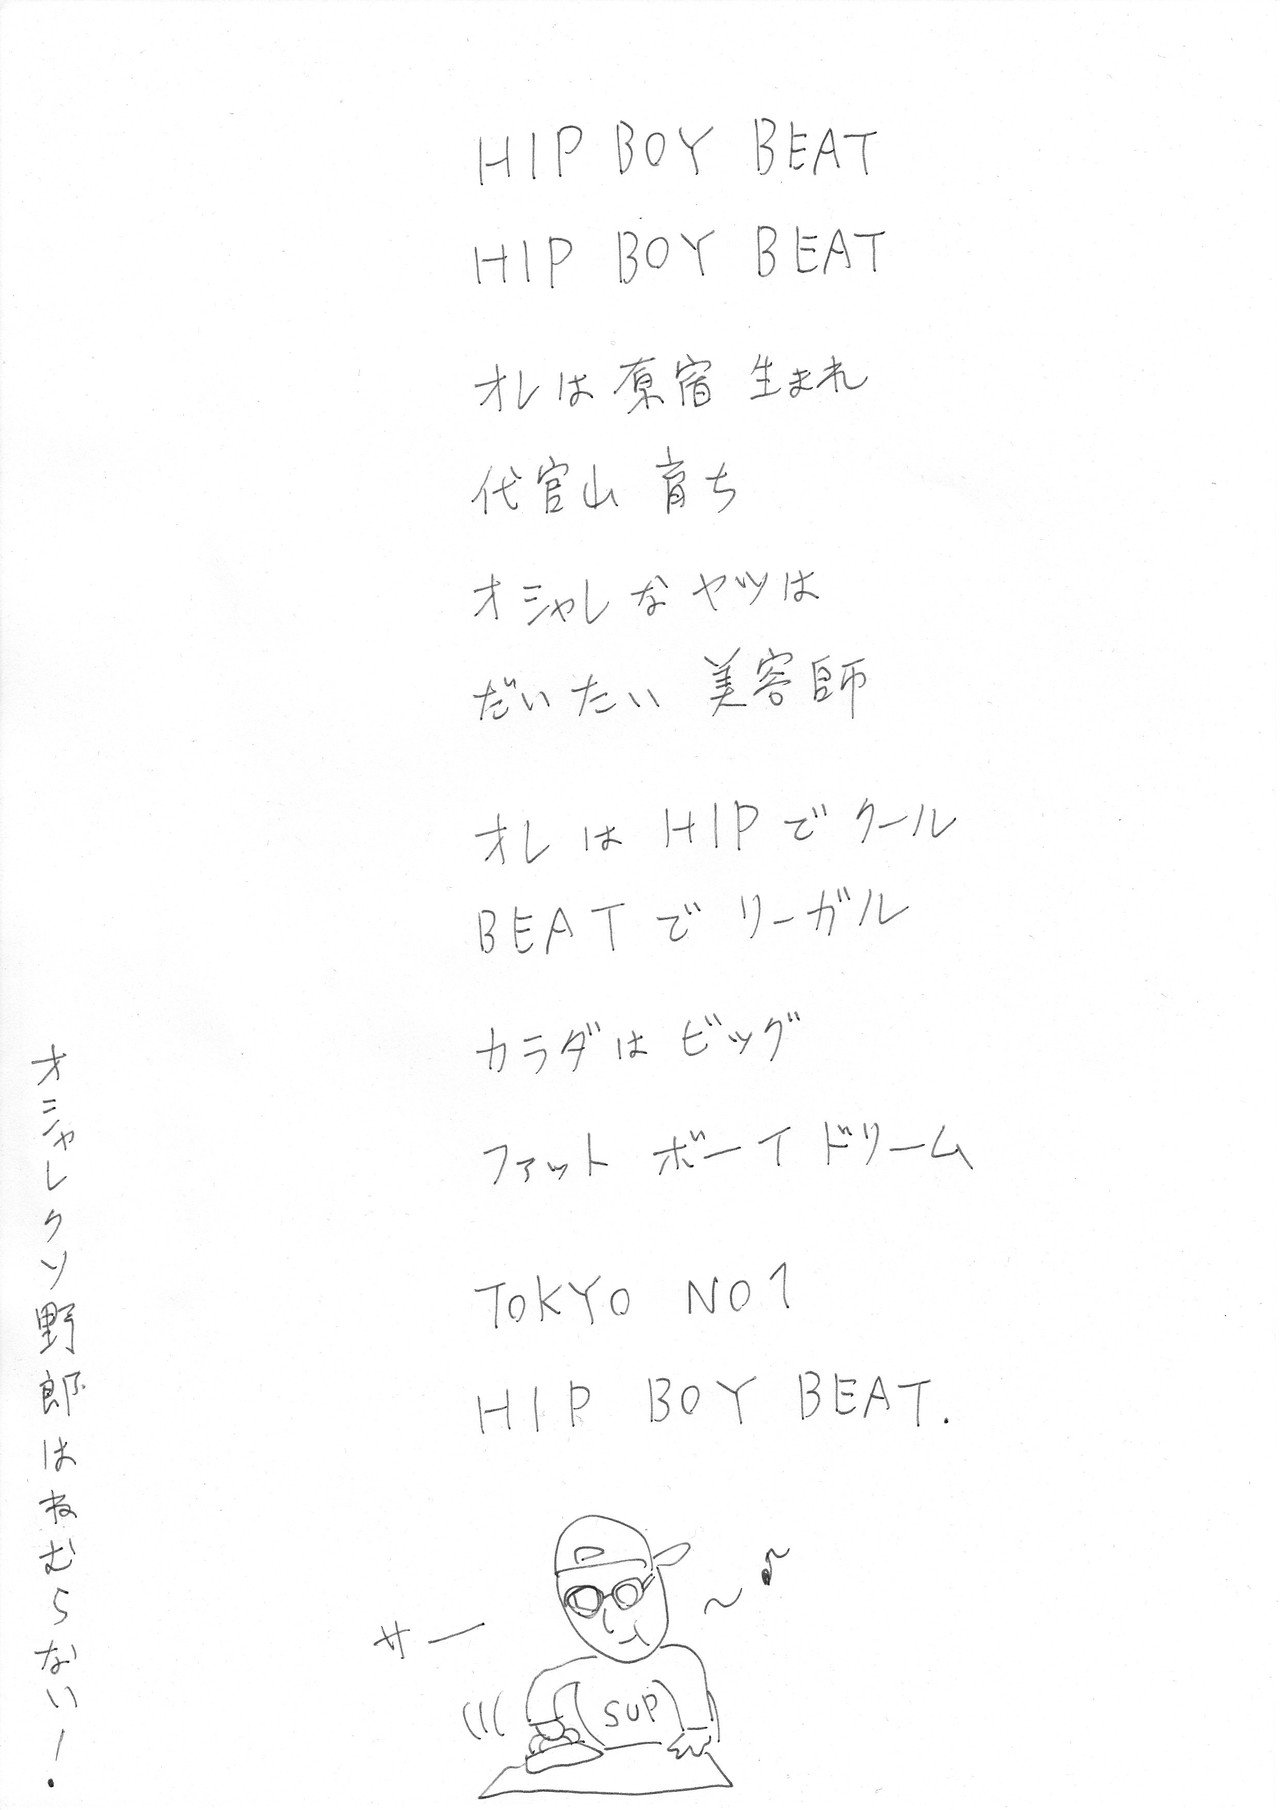 HIP BOY BEAT
HIP BOY BEAT
オレは原宿 生まれ
代官山 育ち
オシャレなヤツは
だいたい 美容師
オレは HIPで クール
BEATで リーガル
カラダは ビッグ
ファット ボーイ ドリーム
TOKYO NO1
HIP BOY BEAT.
サー
SUP
オシャレクソ野郎はねむらない!